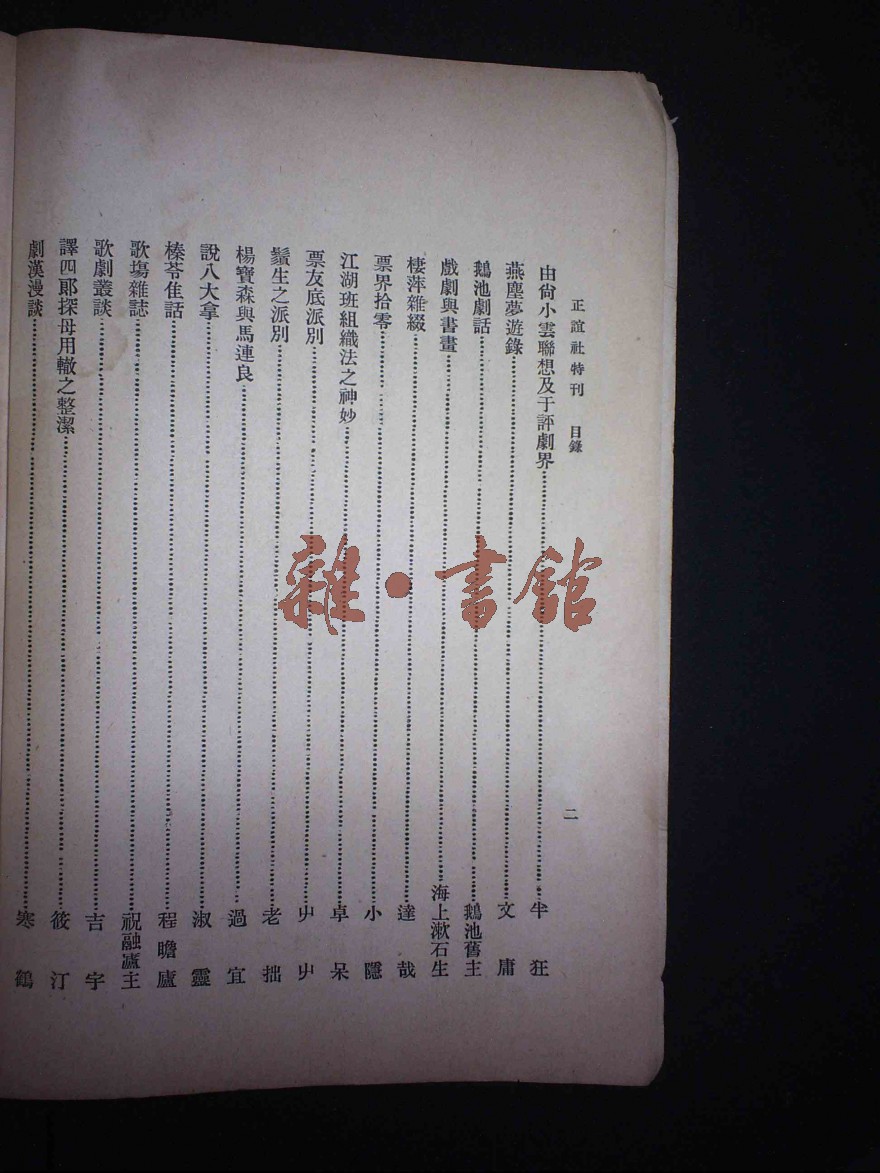 正誼社特刊 目錄 二
由尙小雲聯想及于評劇界 半狂
燕塵夢遊錄 文庸
鵝池劇話 鵝池舊主
戲劇與書畫 海上漱石生
棲萍雜綴 達哉
票界拾零 小隱
江湖班組織法之神妙 卓呆
票友底派別 屮屮
鬚生之派別 老拙
楊寶森與馬連良 過宜
說八大拿 淑靈
榛苓隹話 程瞻廬
歌塲雜誌 祝融盧主
歌劇叢談 吉宇
譯四郞探母用轍之整潔 筱汀
劇漢漫談 寒鶴
雜·書館